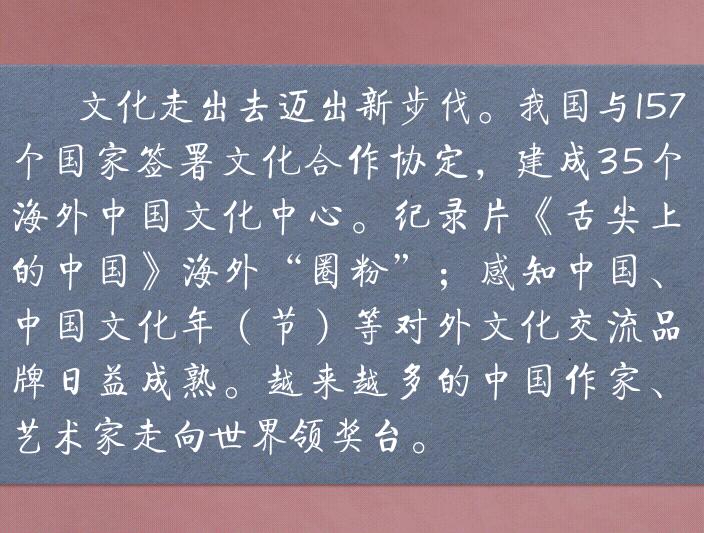 文化走出去迈出新步伐。我国与157
个国家签署文化合作协定，建成35个
海外中国文化中心。纪录片《舌尖上
的中国》海外“圈粉”；感知中国、
中国文化年（节）等对外文化交流品
牌日益成熟。越来越多的中国作家、
艺术家走向世界领奖台。